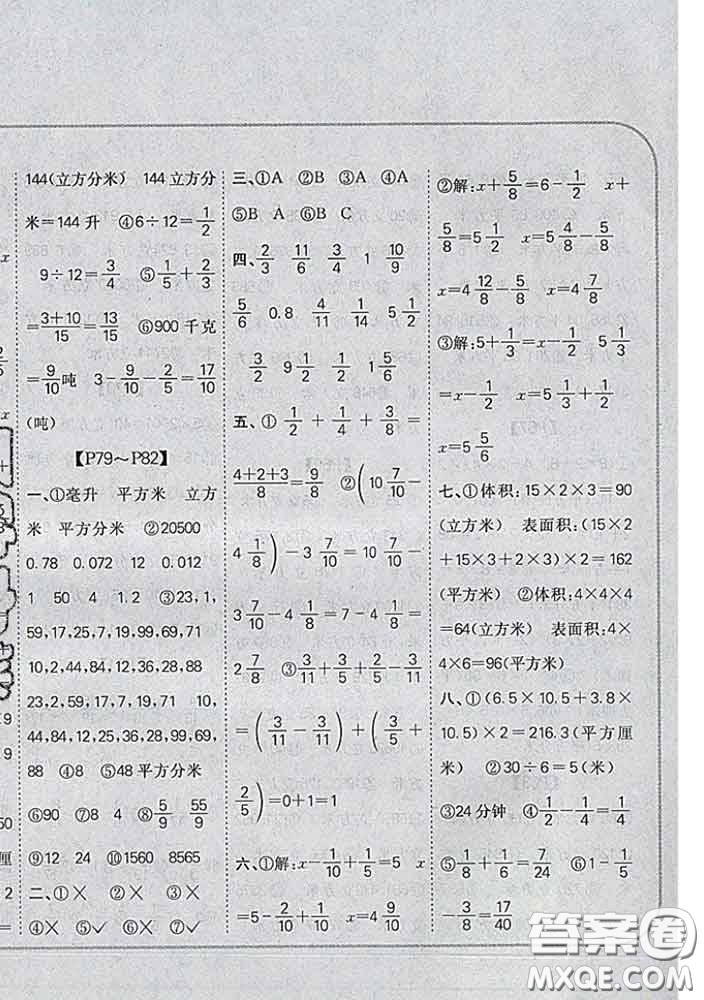 144(立方分米) 144 立方分
米=144 升 ④6÷12=1/2
9÷12=3/4 ⑤1/5+2/3
=3+10/15=13/15 ⑥900 千克
=9/10吨 3 9/10-2/5=17/10
(吨)
【P79～P82】
一、①毫升 平方米 立方
米 平方分米 ②20500
0.78 0.072 12 0.012
1 50 4 1.2 ③23,1,
59,17,25,7,19,99,69,71
10,2,44,84,12,36,28,88
23,2,59,17,7,19,71 10,
44,84,12,25,36,28,99,69,
88 ④8 ⑤48 平方分米
⑥90 ⑦8 4 ⑧5/9 55/9
⑨12 24 ⑩1560 8565
二、①× ②× ③×
④× ⑤✓ ⑥✓ ⑦✓
三、①A ②B ③A ④A
⑤B A ⑥B C
四、2/3 11/6 3/4 1 10/9
5/6 0.8 4/11 1/14 5 1/2
3/2 9 1/2 1/2 1 5/9
五、①1/2+1/4+1/8=
4+2+3/8=9/8 ②(10 7/10-
4 1/8)-3 7/10=10 7/10-
3 7/10-4 1/8=7-4 1/8=
2 7/8 ③3/11+3/5+2/5-3/11
=(3/11-3/11)+(3/5+
2/5)=0+1=1
六、①解:x-1/10+1/10=5 x
=5-2/10+1/10 x=4 9/10
②解:x+5/8=6-1/2 x+
5/8=5 1/2 x=5 4/8-5/8
x=4 12/8-5/8 x=4 7/8
③解:5+1/3=x-1/2 5 1/3
=x-1/2 x=5 1/3+1/2
x=5 5/6
七、①体积:15×2×3=90
(立方米) 表面积:(15×2
+15×3+2×3)×2=162
(平方米) ②体积:4×4×4
=64(立方米) 表面积:4×
4×6=96(平方米)
八、①(6.5×10.5+3.8×
10.5)×2=216.3(平方厘
米) ②30÷6=5(米)
③24 分钟 ④1/2-1/4=1/4
⑤1/8+1/6=7/24 ⑥1-1/5
-3/8=17/40
答案圈
MXQE.COM